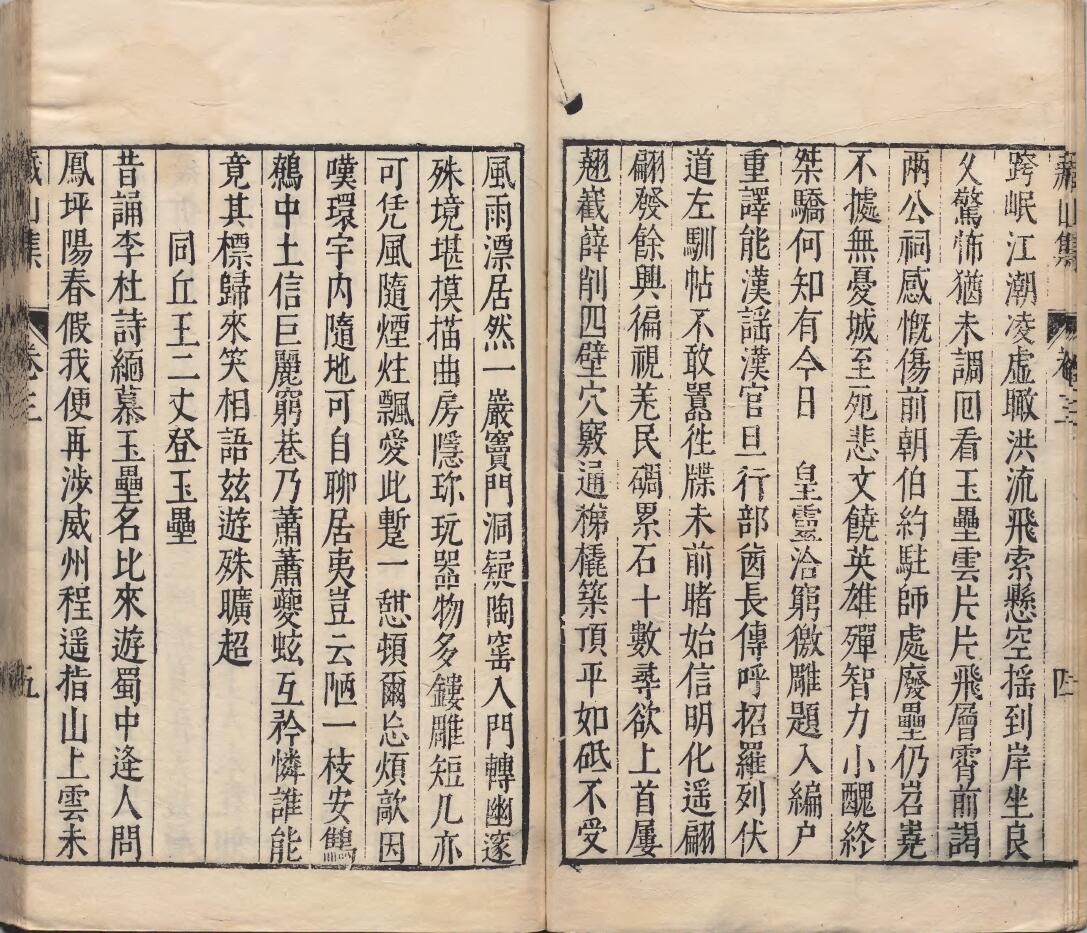 跨岷江潮凌虛瞰洪流飛索懸空揺到岸坐良
乆驚怖猶未調囘看玉壘雲片片飛層霄前謁
兩公祠感慨傷前朝伯約駐師處廢壘仍岧嶤
不據無憂城至死悲文饒英雄殫智力小醜終
桀驕何知有今日　皇靈洽窮徼雕題入編户
重譯能漢謡漢官旦行部酋長傳呼招羅列伏
道左馴帖不敢囂徃牒未前睹始信明化遥翩
翩發餘興徧視羌民碉累石十數尋欲上首屢
翹巀嶭削四壁穴竅通梯橇築頂平如砥不受
風雨漂居然一巖竇門洞疑陶窰入門轉幽邃
殊境堪模描曲房隱珎玩器物多鏤雕短几亦
可凭風隨煙炷飄愛此蹔一憇頓爾忘煩歊因
嘆環宇内隨地可自聊居夷豈云陋一枝安鷦
鷯中土信巨麗窮巷乃蕭蕭夔蚿互矜憐誰能
竟其標歸來笑相語兹遊殊曠超
同丘王二丈登玉壘
昔誦李杜詩緬慕玉壘名比來遊蜀中逢人問
鳳坪陽春假我便再涉威州程遥指山上雲未
山集
卷三
五
山集
卷三
四